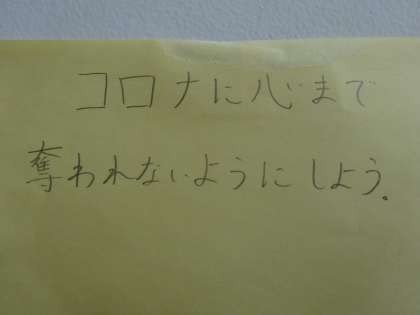 コロナに心まで
奪われないようにしよう.